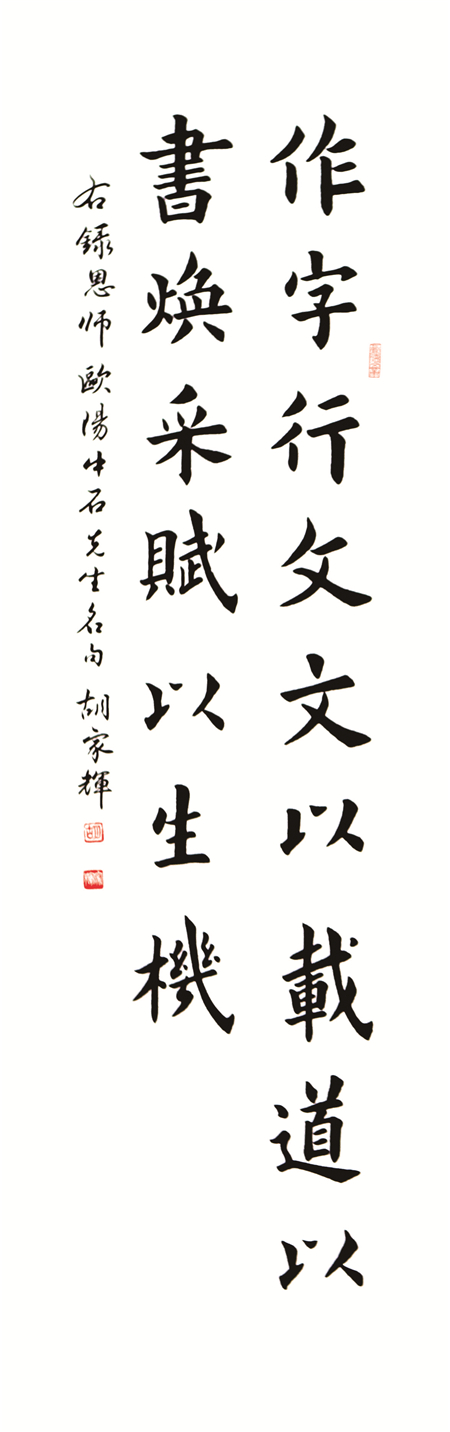 作字行文文以載道以
書煥采賦以生機
右録恩师歐湯中石先生名句 胡家輝